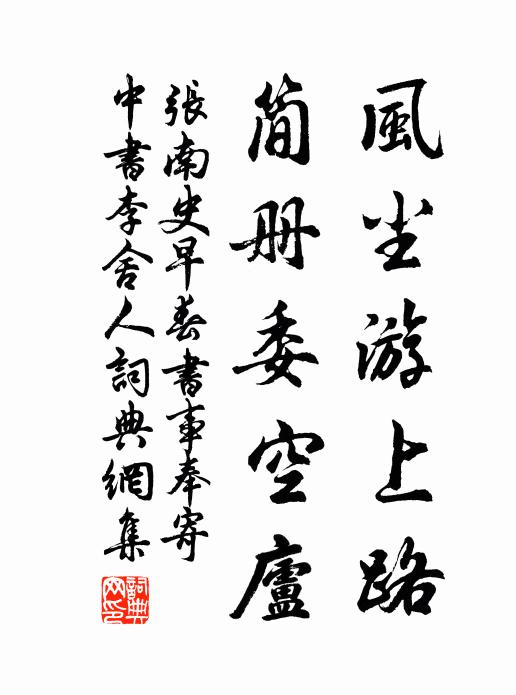 風尘游上路
简册委空廬
張南史早春書事奉寄
中書李舍人詞典網集
詞典網印